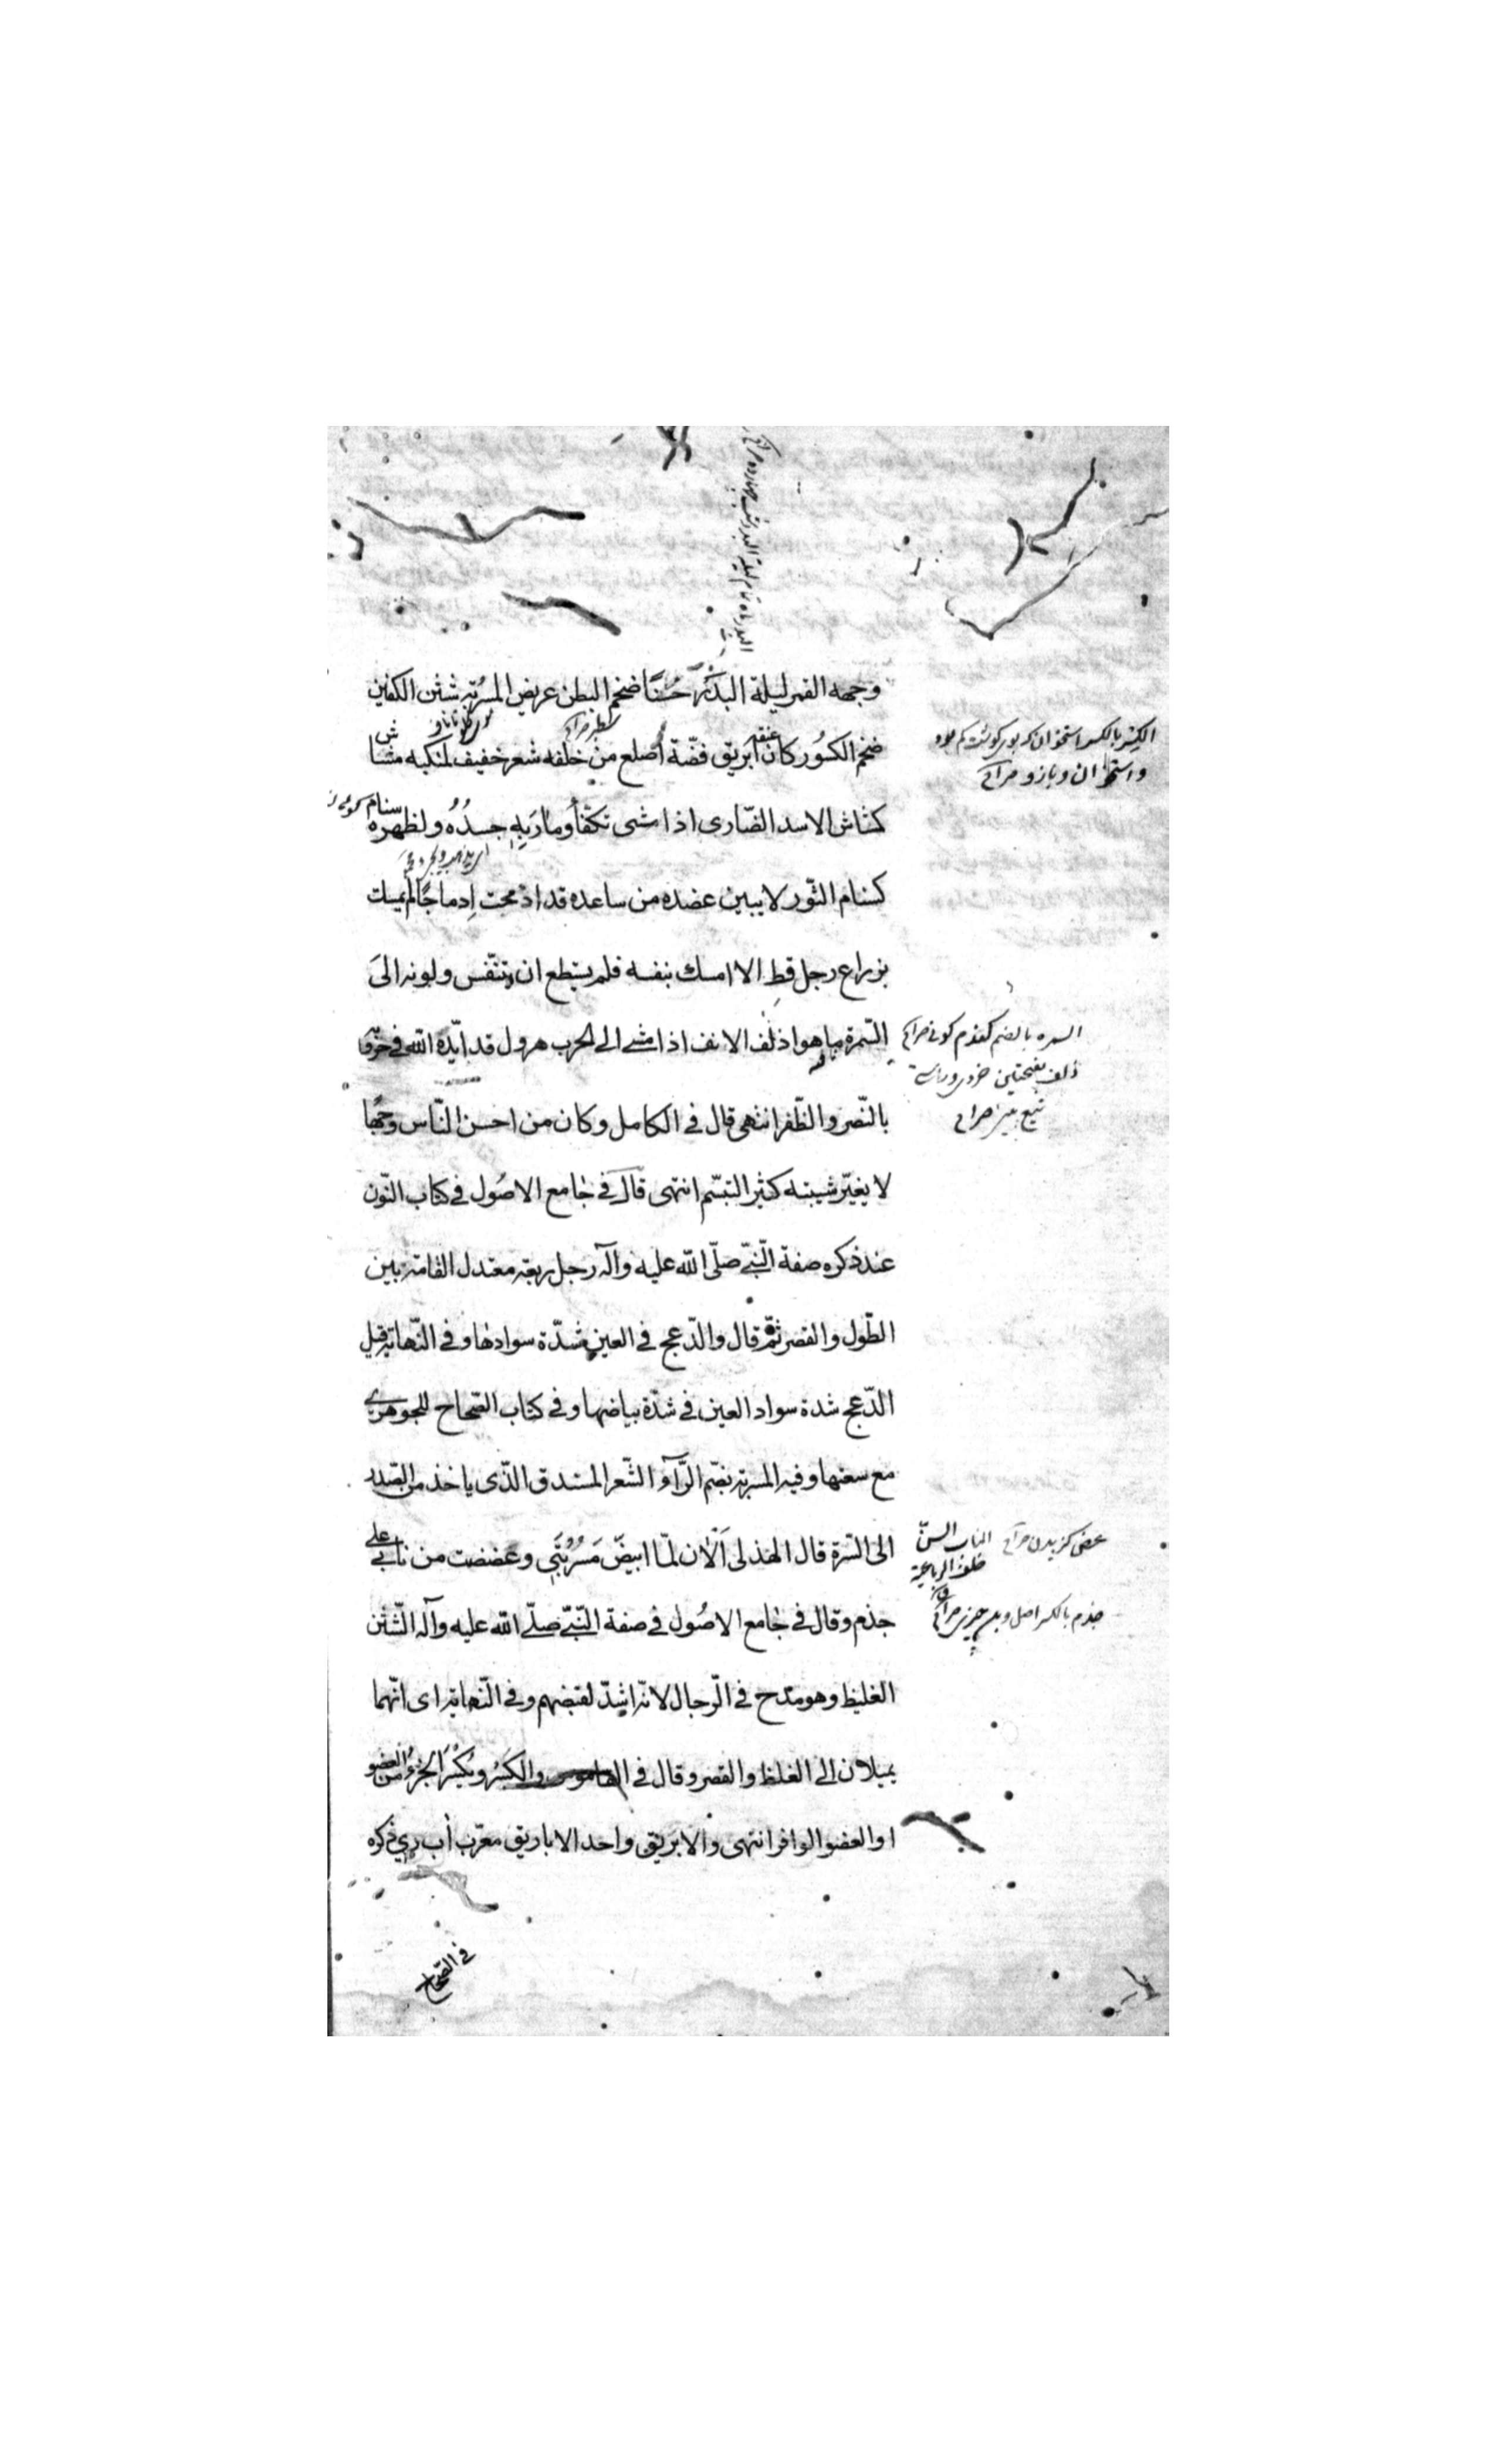 وجهه القمر ليلة البدر حُسنًا ضخم البطن عريض المسرُبة شثن الكفين
ضخم الكسُور كان عنقه ابريق فضّة أصلع من خلفه شعر خفيف لمنكبه مشاش
كمشاش الاسد الضّارى اذا مشى تكفّأ ومار به جسدُهُ ولظهره سنام
كسنام الثّور لا يبين عضده من ساعده قد ادمجت إدماجًا لم يمسك
بزراع رجل قط الا امسك بنفسه فلم يستطع ان يتنفّس ولونه الىَ
السّمرة ما هو اذلف الانف اذا مشى الى الحرب هرول قد ايّده الله فى
بالنّصر والظّفر انتهى قال فى الكامل وكان من احسن النّاس وجهًا
لا يغيّر شيبته كثير التبسّم انتهى قال فى جامع الاصُول فى كتاب النّون
عند ذكره صفة النّبىّ صلّى الله عليه وآله رجل ربعة معتدل القامة بين
الطّول والقصر ثمّ قال والدّعج فى العين شدّة سوادها وفى النّهاية قيل
الدّعج شدة سواد العين فى شدّة بياضها وفى كتاب الصّحاح للجوهرى
مع سعتها وفيه المسربة بضمّ الرّآء الشّعر المستدق الذّى ياخذ من الصّدر
الى السّرة قال الهذلى اَلْآن لمّا ابيضّ مَسْرُبَتى وعضضت من نابى على
جذم وقال فى جامع الاصُول فى صفة النّبىّ صلّى الله عليه وآله الشّثن
الغليظ وهو مدح فى الرّجال لانّه اشدّ لقبضهم وفى النّهاية اى انّهما
يميلان الى الغلظ والقصر وقال فى القاموس والكَسْر ويُكْسَر الجزء من العضو
او العضو الوافر انتهى والابريق واحد الاباريق معرّب آب رى ذكره
فى الصّحاح
الكسر بالكسر استخوان كه بروى گوشت كم بود
واستخوان وبازو صراح
السمره بالضم گندم گونى صراح
ذلف بفتحتين خردى
عض گزيدن صراح
الناب السنّ
خلف الرباعية
جذم بالكسر اصل وبن چيزى صراح